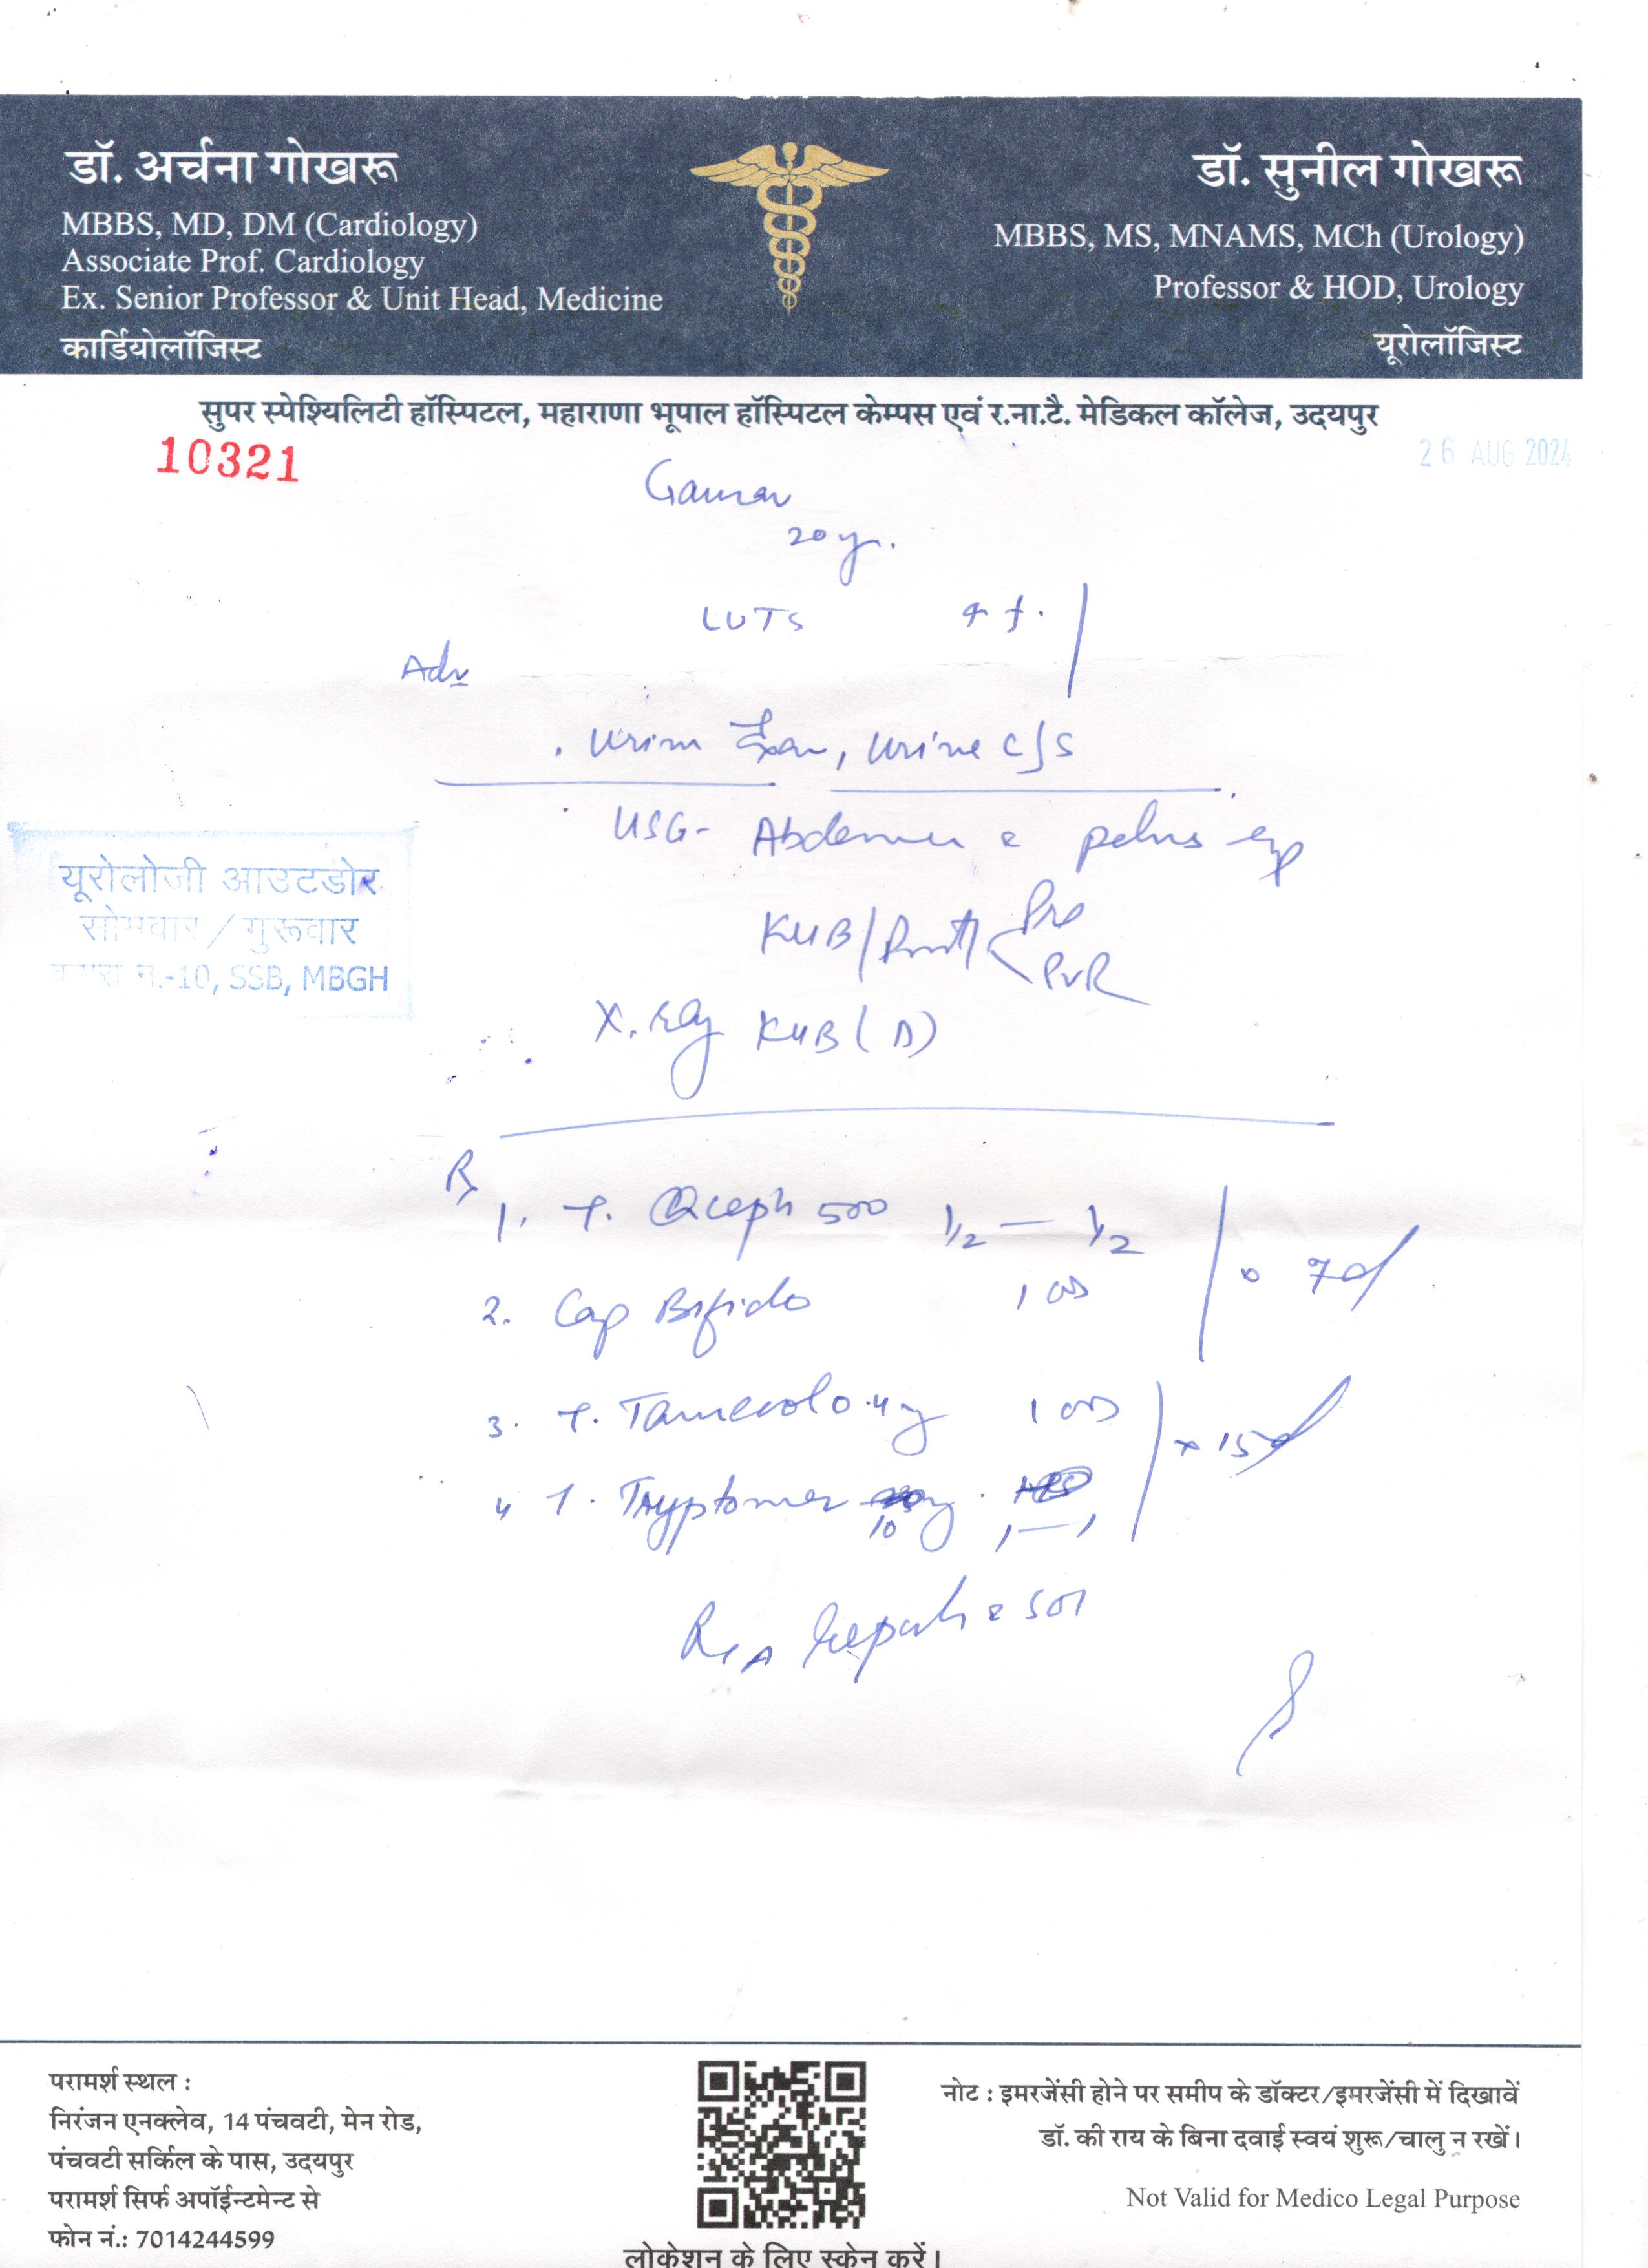 डॉ. अर्चना गोखरू
MBBS, MD, DM (Cardiology)
Associate Prof. Cardiology
Ex. Senior Professor & Unit Head, Medicine
कार्डियोलॉजिस्ट
डॉ. सुनील गोखरू
MBBS, MS, MNAMS, MCh (Urology)
Professor & HOD, Urology
यूरोलॉजिस्ट
सुपर स्पेश्यिलिटी हॉस्पिटल, महाराणा भूपाल हॉस्पिटल केम्पस एवं र.ना.टै. मेडिकल कॉलेज, उदयपुर
10321
26 AUG 2024
Gaurav
20 y.
LUTS
Adv
Urine Exam, Urine C/S
USG- Abdomen & pelvis
KUB/Prost Pre
PVR
यूरोलोजी आउटडोर
सोमवार / गुरूवार
न.-10, SSB, MBGH
X. ray KUB
Rx
1. T. 500 1/2 — 1/2
2. Cap Bifido 1 OD 7d
3. T. 1 OD
x 15d
4 T. Tryptomer 10 mg. 1 — 1
Reports SOS
परामर्श स्थल :
निरंजन एनक्लेव, 14 पंचवटी, मेन रोड,
पंचवटी सर्किल के पास, उदयपुर
परामर्श सिर्फ अपॉईन्टमेन्ट से
फोन नं.: 7014244599
लोकेशन के लिए स्केन करें।
नोट : इमरजेंसी होने पर समीप के डॉक्टर/इमरजेंसी में दिखावें
डॉ. की राय के बिना दवाई स्वयं शुरू/चालु न रखें।
Not Valid for Medico Legal Purpose